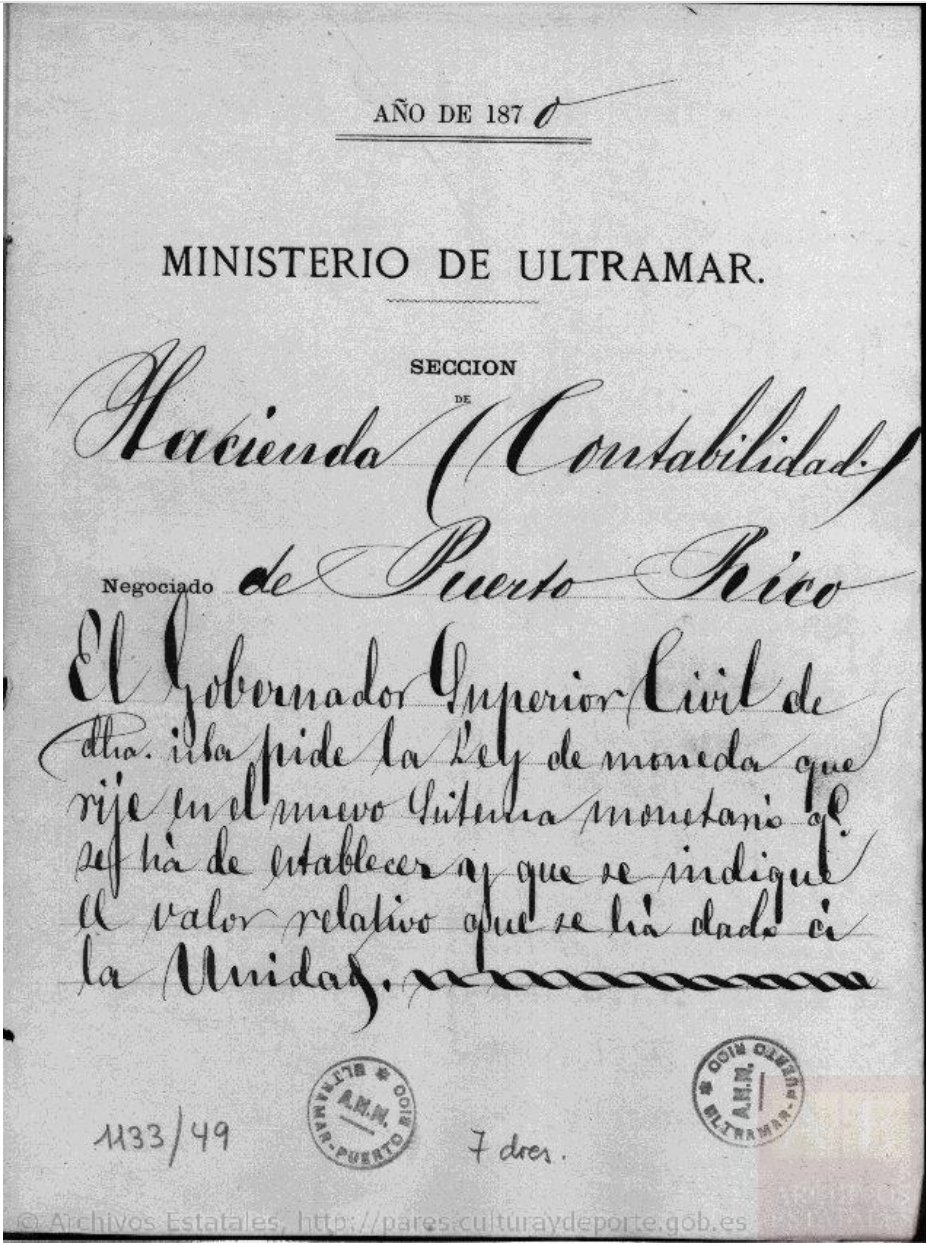 AÑO DE 1870
MINISTERIO DE ULTRAMAR.
SECCION
DE
Hacienda (Contabilidad.)
Negociado de Puerto Rico
El Gobernador Superior Civil de
dha. isla pide la Ley de moneda que
rije en el nuevo Sistema monetario qe.
se há de establecer y que se indique
el valor relativo que se há dado á
la Unidad.
ULTRAMAR-PUERTO RICO
A.H.N.
ULTRAMAR-PUERTO RICO
A.H.N.
1133/49
7 dres.
© Archivos Estatales, http://pares.culturaydeporte.gob.es